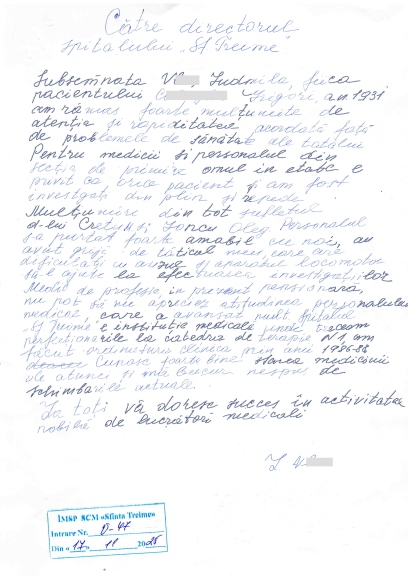 Către directorul
spitalului "Sf Treime"
Subsemnata V Ludmila, fiica
pacientului Grigori, a.n 1931
am rămas foarte mulțumite de
atenția și rapiditatea acordată față
de problemele de sănătate ale tatălui
Pentru medicii și personalul din
secția de primire omul în etate e
privit ca orice pacient și am fost
investigați din plin și repede.
Mulțumire din tot sufletul
d-lui Crețu și Ioncu Oleg. Personalul
s-a purtat foarte amabil cu noi, au
avut grijă de tăticul meu, care are
dificultăți cu auzul și aparatul locomotor
să-l ajute la efectuarea investigațiilor
Medic de profesie, în prezent pensionară,
nu pot să nu apreciez atitudinea personalului
medical, care a avansat mult spitalul
"Sf Treime" e instituție medicală unde treceam
perfecționările la catedra de terapie N1, am
făcut ordinatura clinică prin anii 1986-88
Cunosc foarte bine starea medicinii
de atunci și mă bucur nespus de
schimbările actuale.
La toți vă doresc succes în activitatea
nobilă de lucrători medicali
L V
IMSP SCM «Sfînta Treime»
Intrare Nr. D-47
Din «17» 11 2025